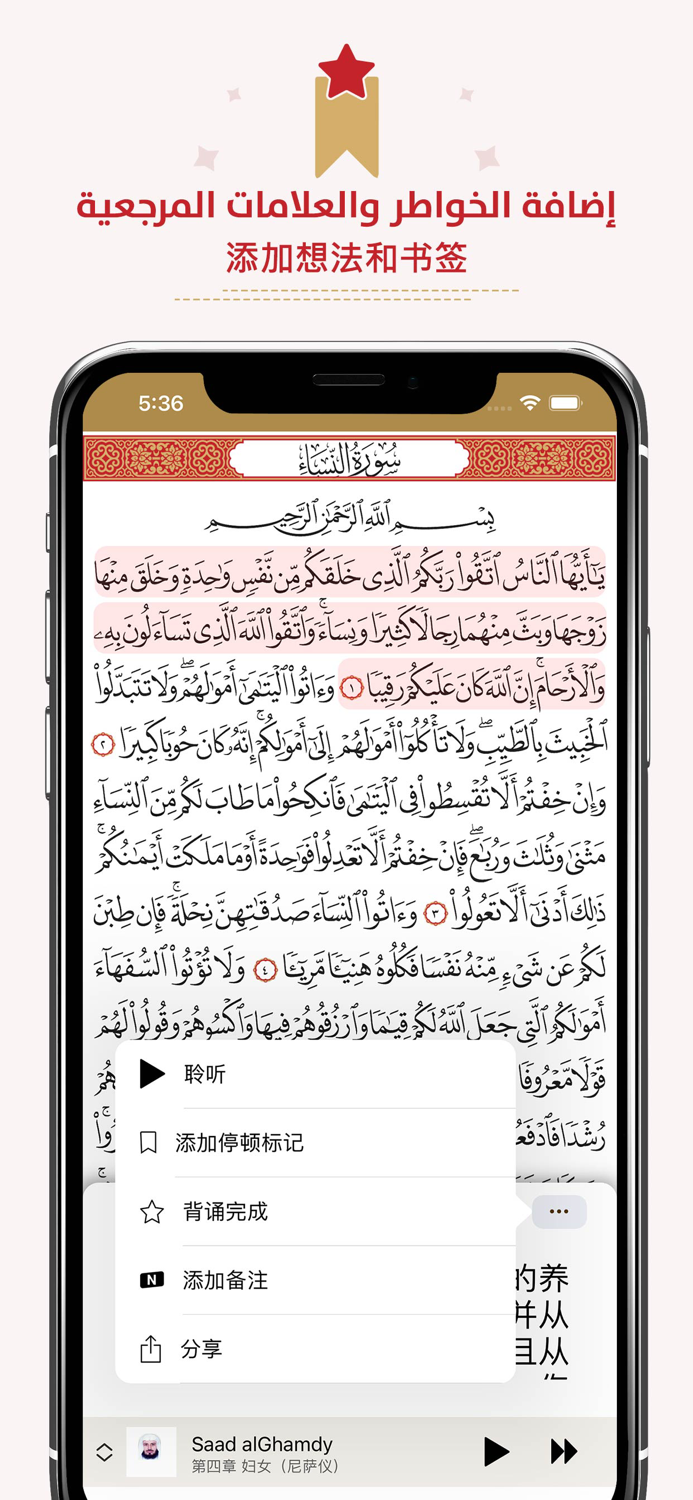 إضافة الخواطر والعلامات المرجعية
添加想法和书签
5:36
سُورَةُ النِّسَاءِ
بِسْمِ ٱللَّهِ ٱلرَّحْمَٰنِ ٱلرَّحِيمِ
يَٰٓأَيُّهَا ٱلنَّاسُ ٱتَّقُوا۟ رَبَّكُمُ ٱلَّذِى خَلَقَكُم مِّن نَّفْسٍ وَٰحِدَةٍ وَخَلَقَ مِنْهَا
زَوْجَهَا وَبَثَّ مِنْهُمَا رِجَالًا كَثِيرًا وَنِسَآءً ۚ وَٱتَّقُوا۟ ٱللَّهَ ٱلَّذِى تَسَآءَلُونَ بِهِۦ
وَٱلْأَرْحَامَ ۚ إِنَّ ٱللَّهَ كَانَ عَلَيْكُمْ رَقِيبًا ١ وَءَاتُوا۟ ٱلْيَتَٰمَىٰٓ أَمْوَٰلَهُمْ ۖ وَلَا تَتَبَدَّلُوا۟
ٱلْخَبِيثَ بِٱلطَّيِّبِ ۖ وَلَا تَأْكُلُوٓا۟ أَمْوَٰلَهُمْ إِلَىٰٓ أَمْوَٰلِكُمْ ۚ إِنَّهُۥ كَانَ حُوبًا كَبِيرًا ٢
وَإِنْ خِفْتُمْ أَلَّا تُقْسِطُوا۟ فِى ٱلْيَتَٰمَىٰ فَٱنكِحُوا۟ مَا طَابَ لَكُم مِّنَ ٱلنِّسَآءِ
مَثْنَىٰ وَثُلَٰثَ وَرُبَٰعَ ۖ فَإِنْ خِفْتُمْ أَلَّا تَعْدِلُوا۟ فَوَٰحِدَةً أَوْ مَا مَلَكَتْ أَيْمَٰنُكُمْ ۚ
ذَٰلِكَ أَدْنَىٰٓ أَلَّا تَعُولُوا۟ ٣ وَءَاتُوا۟ ٱلنِّسَآءَ صَدُقَٰتِهِنَّ نِحْلَةً ۚ فَإِن طِبْنَ
لَكُمْ عَن شَىْءٍ مِّنْهُ نَفْسًا فَكُلُوهُ هَنِيٓـًٔا مَّرِيٓـًٔا ٤ وَلَا تُؤْتُوا۟ ٱلسُّفَهَآءَ
أَمْوَٰلَكُمُ ٱلَّتِى جَعَلَ ٱللَّهُ لَكُمْ قِيَٰمًا وَٱرْزُقُوهُمْ فِيهَا وَٱكْسُوهُمْ وَقُولُوا۟ لَهُمْ
قَوْلًا مَّعْرُوفًا
رُشْدًا فَٱدْفَعُ
聆听
添加停顿标记
背诵完成
添加备注
分享
的养
并从
且从
Saad alGhamdy
第四章 妇女（尼萨仪）